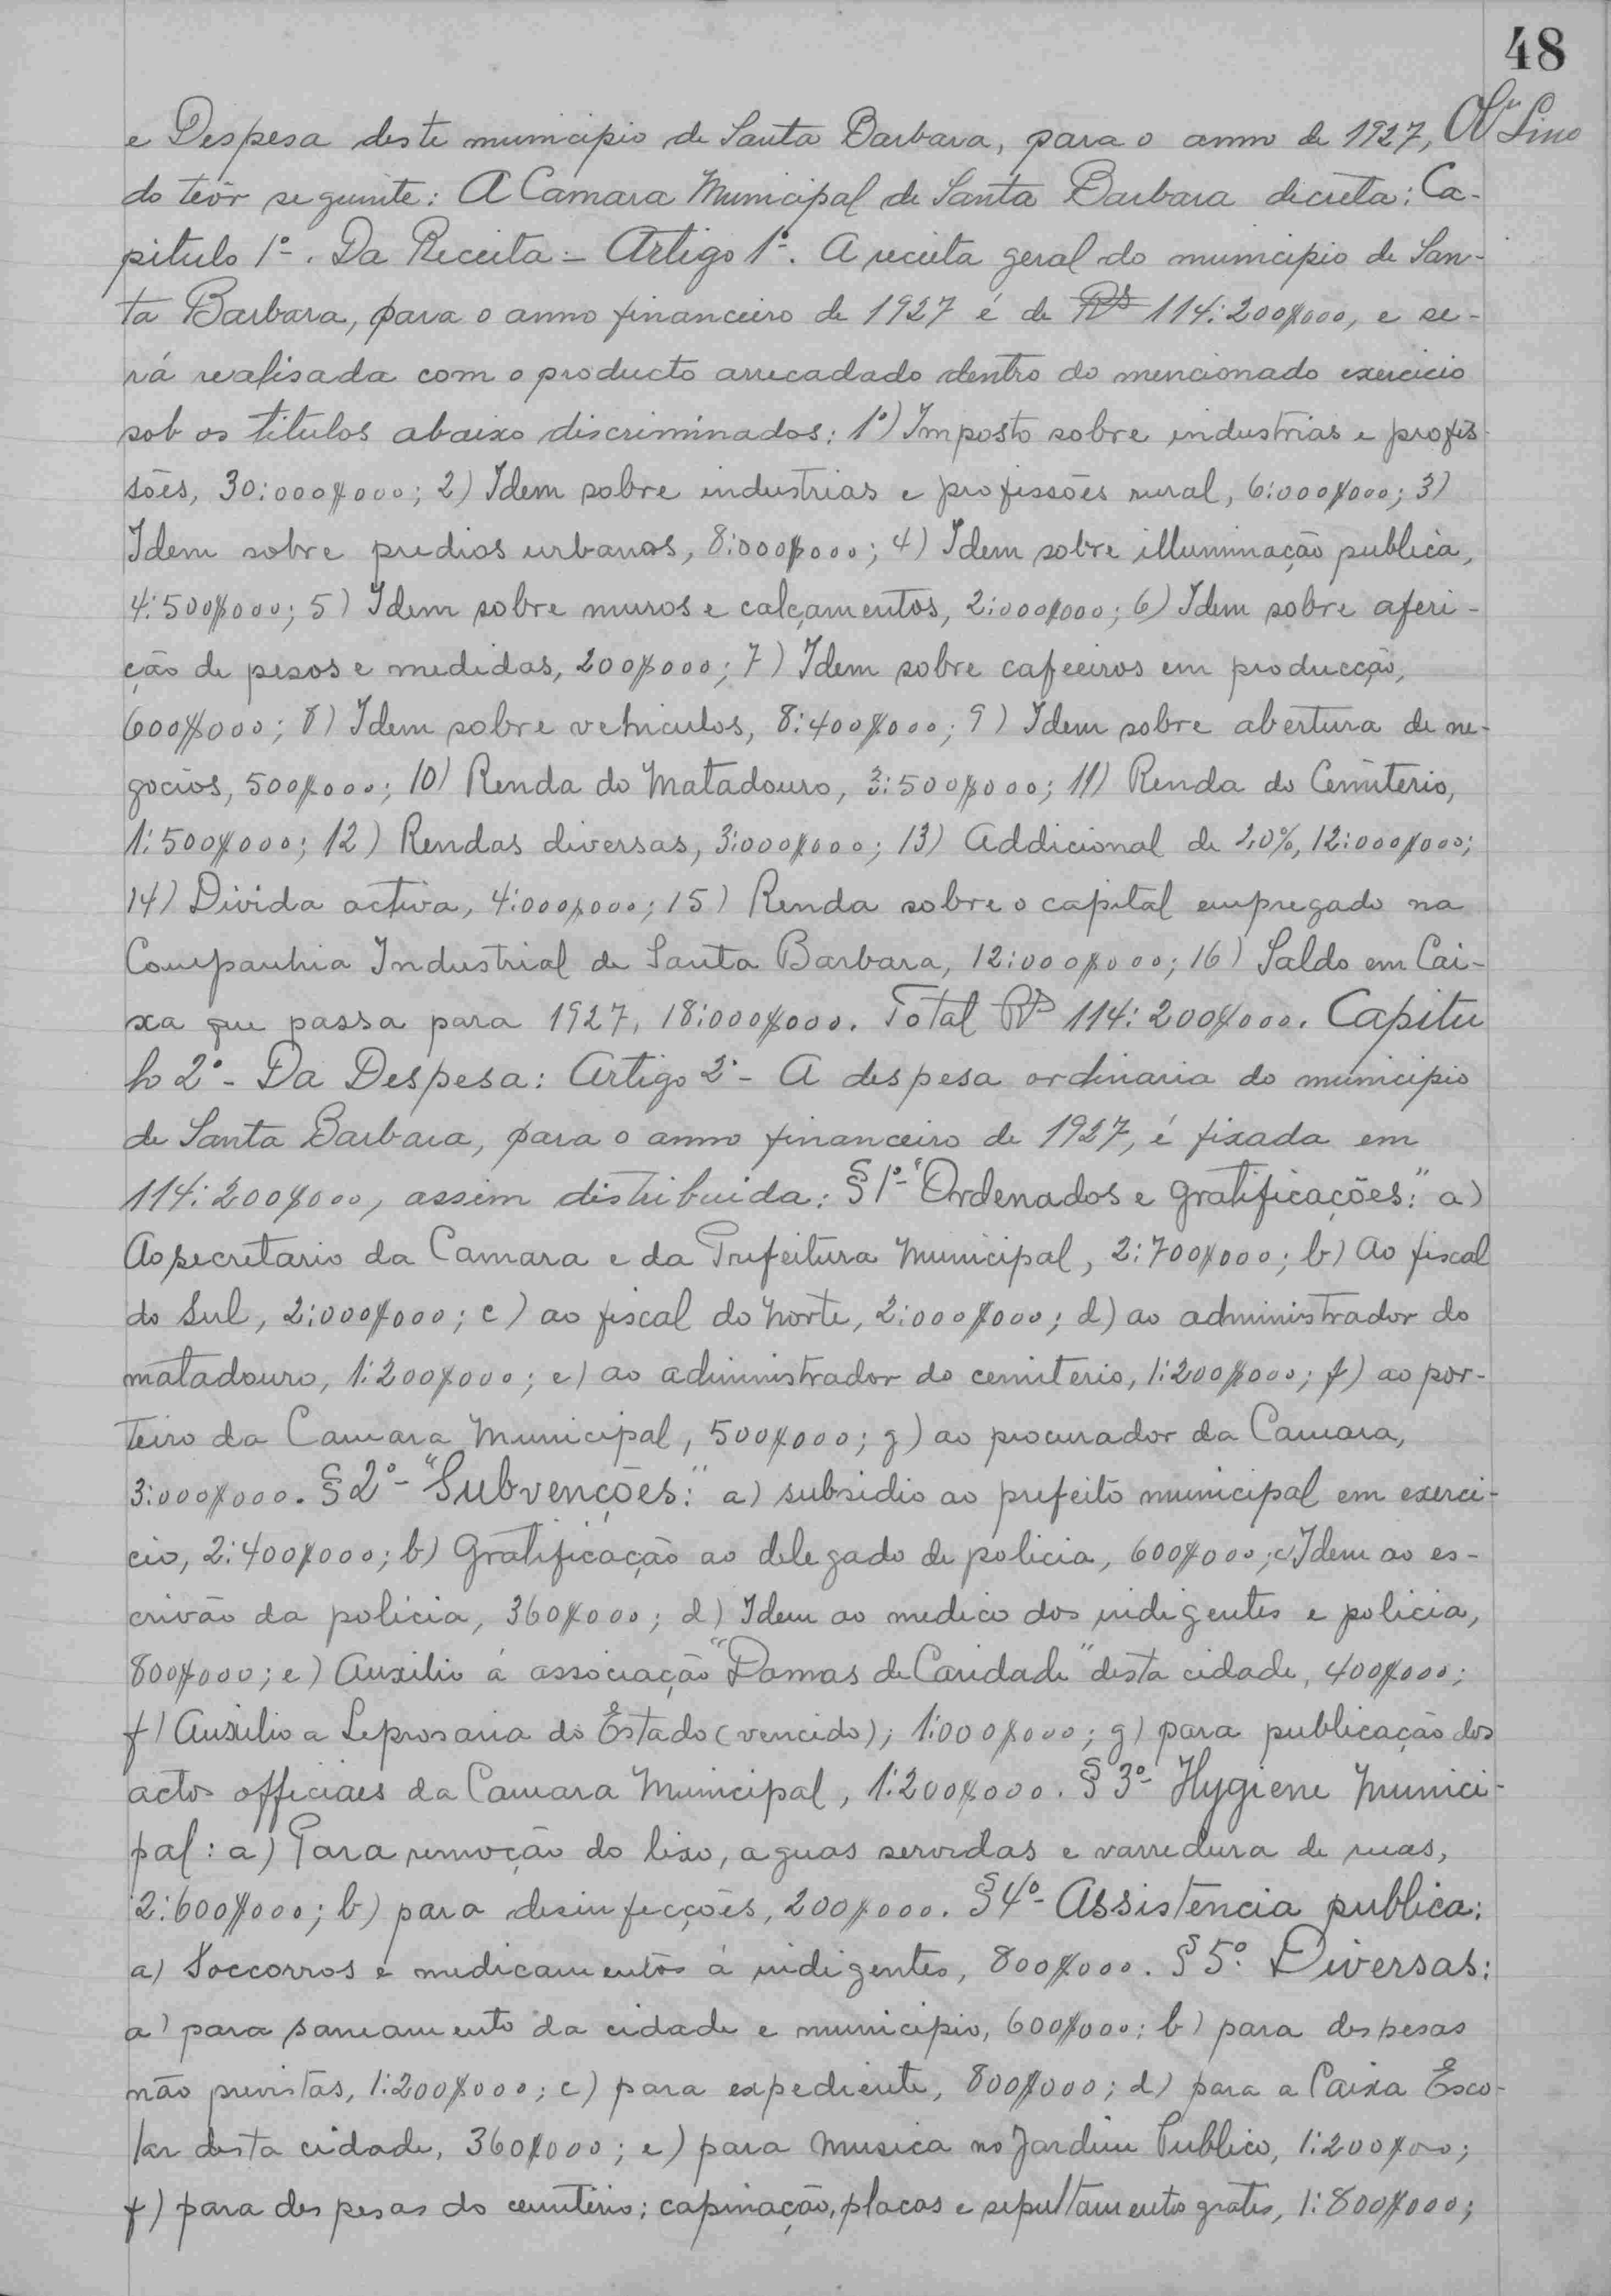 48
e Despesa deste municipio de Santa Barbara, para o anno de 1927, Lino
do teôr seguinte: A Camara Municipal de Santa Barbara decreta: Ca-
pitulo 1º. Da Receita - Artigo 1º. A receita geral do municipio de San-
ta Barbara, para o anno financeiro de 1927 é de Rs 114:200$000, e se-
rá realisada com o producto arrecadado dentro do mencionado exercicio
sob os titulos abaixo discriminados: 1º) Imposto sobre industrias e profis-
sões, 30:000$000; 2) Idem sobre industrias e profissões rural, 6:000$000; 3)
Idem sobre predios urbanos, 8:000$000; 4) Idem sobre illuminação publica,
4:500$000; 5) Idem sobre muros e calçamentos, 2:000$000; 6) Idem sobre aferi-
ção de pesos e medidas, 200$000; 7) Idem sobre cafeeiros em producção,
600$000; 8) Idem sobre vehiculos, 8:400$000; 9) Idem sobre abertura de ne-
gocios, 500$000; 10) Renda do Matadouro, 3:500$000; 11) Renda do Cemiterio,
1:500$000; 12) Rendas diversas, 3:000$000; 13) Addicional de 20%, 12:000$000;
14) Divida activa, 4:000$000; 15) Renda sobre o capital empregado na
Companhia Industrial de Santa Barbara, 12:000$000; 16) Saldo em Cai-
xa que passa para 1927, 18:000$000. Total Rs 114:200$000. Capitu
lo 2º - Da Despesa: Artigo 2º - A despesa ordinaria do municipio
de Santa Barbara, para o anno financeiro de 1927, é fixada em
114:200$000, assim distribuida: § 1º - "Ordenados e gratificações:" a)
Ao secretario da Camara e da Prefeitura Municipal, 2:700$000; b) Ao fiscal
do Sul, 2:000$000; c) ao fiscal do Norte, 2:000$000; d) ao administrador do
matadouro, 1:200$000; e) ao administrador do cemiterio, 1:200$000; f) ao por-
teiro da Camara Municipal, 500$000; g) ao procurador da Camara,
3:000$000. § 2º - "Subvenções:" a) subsidio ao prefeito municipal em exerci-
cio, 2:400$000; b) Gratificação ao delegado de policia, 600$000; c) Idem ao es-
crivão da policia, 360$000; d) Idem ao medico dos indigentes e policia,
800$000; e) Auxilio á associação "Damas de Caridade" desta cidade, 400$000;
f) Auxilio a Leprosaria do Estado (vencido); 1:000$000; g) para publicação dos
actos officiaes da Camara Municipal, 1:200$000. § 3º - Hygiene Munici-
pal: a) Para remoção do lixo, aguas servidas e varredura de ruas,
2:600$000; b) para desinfecções, 200$000. § 4º - Assistencia publica:
a) Soccorros e medicamentos á indigentes, 800$000. § 5º. Diversas:
a) para saneamento da cidade e municipio, 600$000; b) para despesas
não previstas, 1:200$000; c) para expediente, 800$000; d) para a Caixa Esco-
lar desta cidade, 360$000; e) para Musica no Jardim Publico, 1:200$000;
f) para despesas do cemiterio; capinação, placas e sepultamento gratis, 1:800$000;